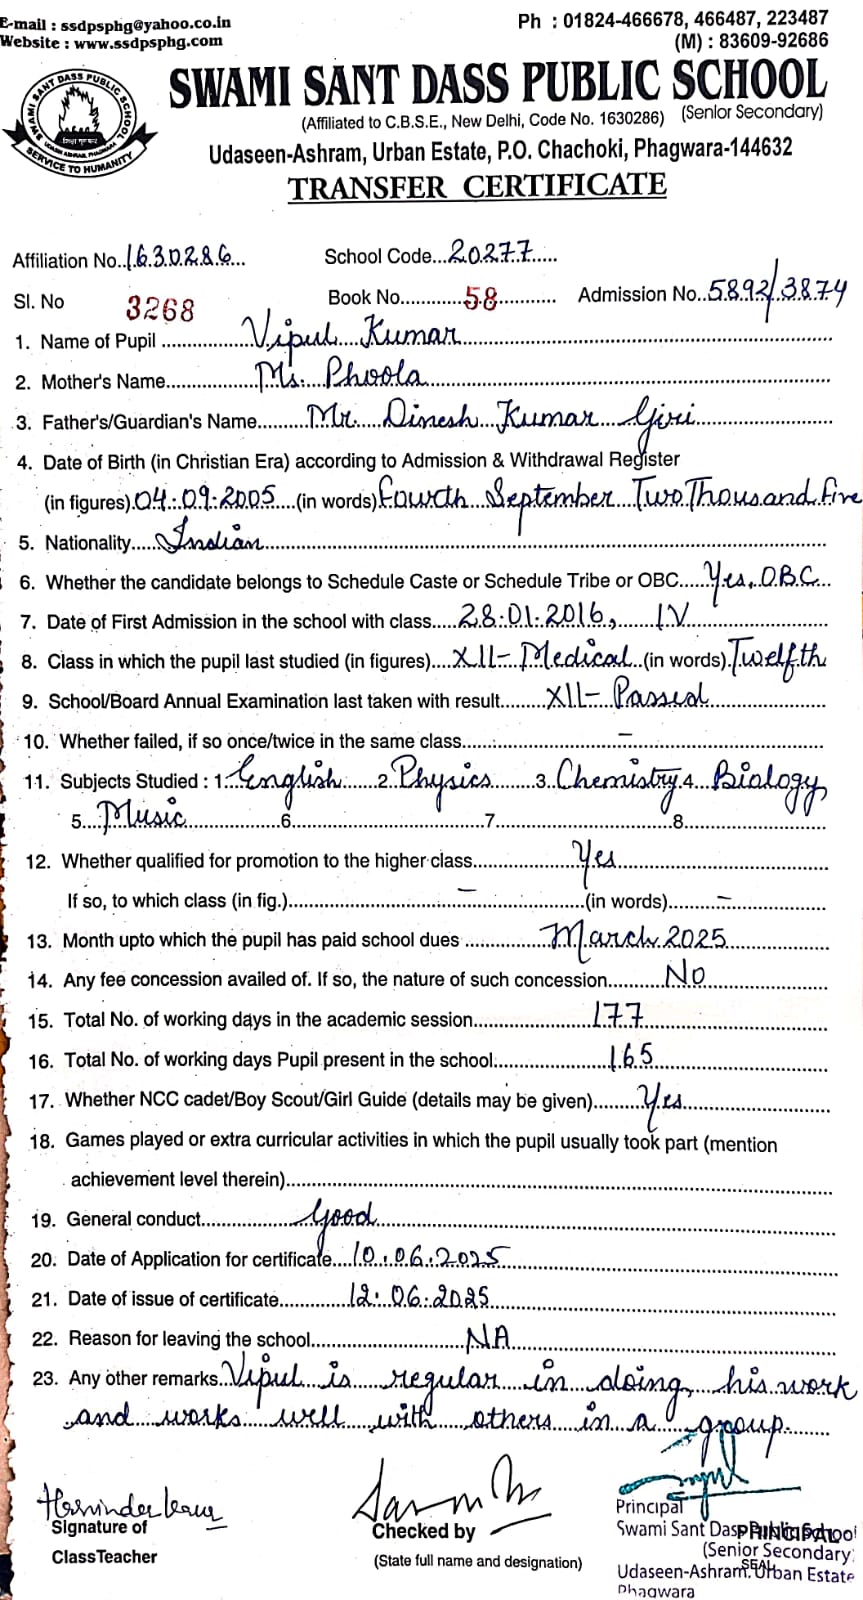 E-mail : ssdpsphg@yahoo.co.in
Website : www.ssdpsphg.com
Ph : 01824-466678, 466487, 223487
(M) : 83609-92686
SWAMI SANT DASS PUBLIC SCHOOL
(Affiliated to C.B.S.E., New Delhi, Code No. 1630286) (Senior Secondary)
SWAMI SANT DASS PUBLIC SCHOOL
SERVICE TO HUMANITY
Udaseen-Ashram, Urban Estate, P.O. Chachoki, Phagwara-144632
TRANSFER CERTIFICATE
Affiliation No. 1630286 School Code 20277
Sl. No 3268 Book No. 58 Admission No. 5892/3874
1. Name of Pupil Vipul Kumar
2. Mother's Name Ms. Phoola
3. Father's/Guardian's Name Mr. Dinesh Kumar Giri
4. Date of Birth (in Christian Era) according to Admission & Withdrawal Register
(in figures) 04.09.2005 (in words) Fourth September Two Thousand Five
5. Nationality Indian
6. Whether the candidate belongs to Schedule Caste or Schedule Tribe or OBC Yes, OBC
7. Date of First Admission in the school with class 28.01.2016, IV
8. Class in which the pupil last studied (in figures) XII- Medical (in words) Twelfth
9. School/Board Annual Examination last taken with result XII- Passed
10. Whether failed, if so once/twice in the same class –
11. Subjects Studied : 1. English 2. Physics 3. Chemistry 4. Biology
5. Music 6. 7. 8.
12. Whether qualified for promotion to the higher class Yes
If so, to which class (in fig.) – (in words) –
13. Month upto which the pupil has paid school dues March 2025
14. Any fee concession availed of. If so, the nature of such concession No
15. Total No. of working days in the academic session 177
16. Total No. of working days Pupil present in the school 165
17. Whether NCC cadet/Boy Scout/Girl Guide (details may be given) Yes
18. Games played or extra curricular activities in which the pupil usually took part (mention
achievement level therein)
19. General conduct Good
20. Date of Application for certificate 10.06.2025
21. Date of issue of certificate 12.06.2025
22. Reason for leaving the school NA
23. Any other remarks Vipul is regular in doing his work
and works well with others in a group.
Harvinder Kaur
Signature of
ClassTeacher
Checked by
(State full name and designation)
Principal
Swami Sant Dass Public School
PRINCIPAL
(Senior Secondary)
SEAL
Udaseen-Ashram. Urban Estate
Phagwara